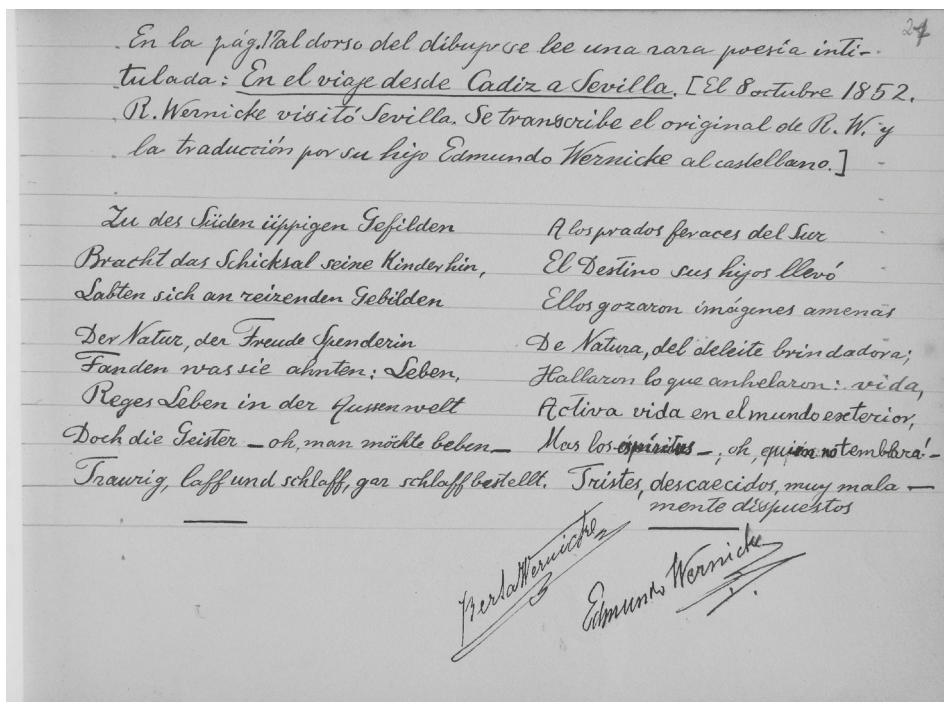 27
En la pág. 17 al dorso del dibujo se lee una rara poesía inti-
tulada: En el viaje desde Cadiz a Sevilla. [El 8 octubre 1852.
R. Wernicke visitó Sevilla. Se transcribe el original de R. W. y
la traducción por su hijo Edmundo Wernicke al castellano.]
Zu des Süden üppigen Gefilden
Bracht das Schicksal seine Kinder hin,
Labten sich an reizenden Gebilden
Der Natur, der Freude Spenderin
Fanden was sie ahnten: Leben,
Reges Leben in der Aussenwelt
Doch die Geister — oh, man möchte beben —
Traurig, laff und schlaff, gar schlaff bestellt.
A los prados feraces del Sur
El Destino sus hijos llevó
Ellos gozaron imágenes amenas
De Natura, del deleite brindadora;
Hallaron lo que anhelaron: vida,
Activa vida en el mundo exterior,
Mas los espíritus —, oh, quien no temblará! —
Tristes, descaecidos, muy mala —
mente dispuestos
Berta Wernicke
Edmundo Wernicke